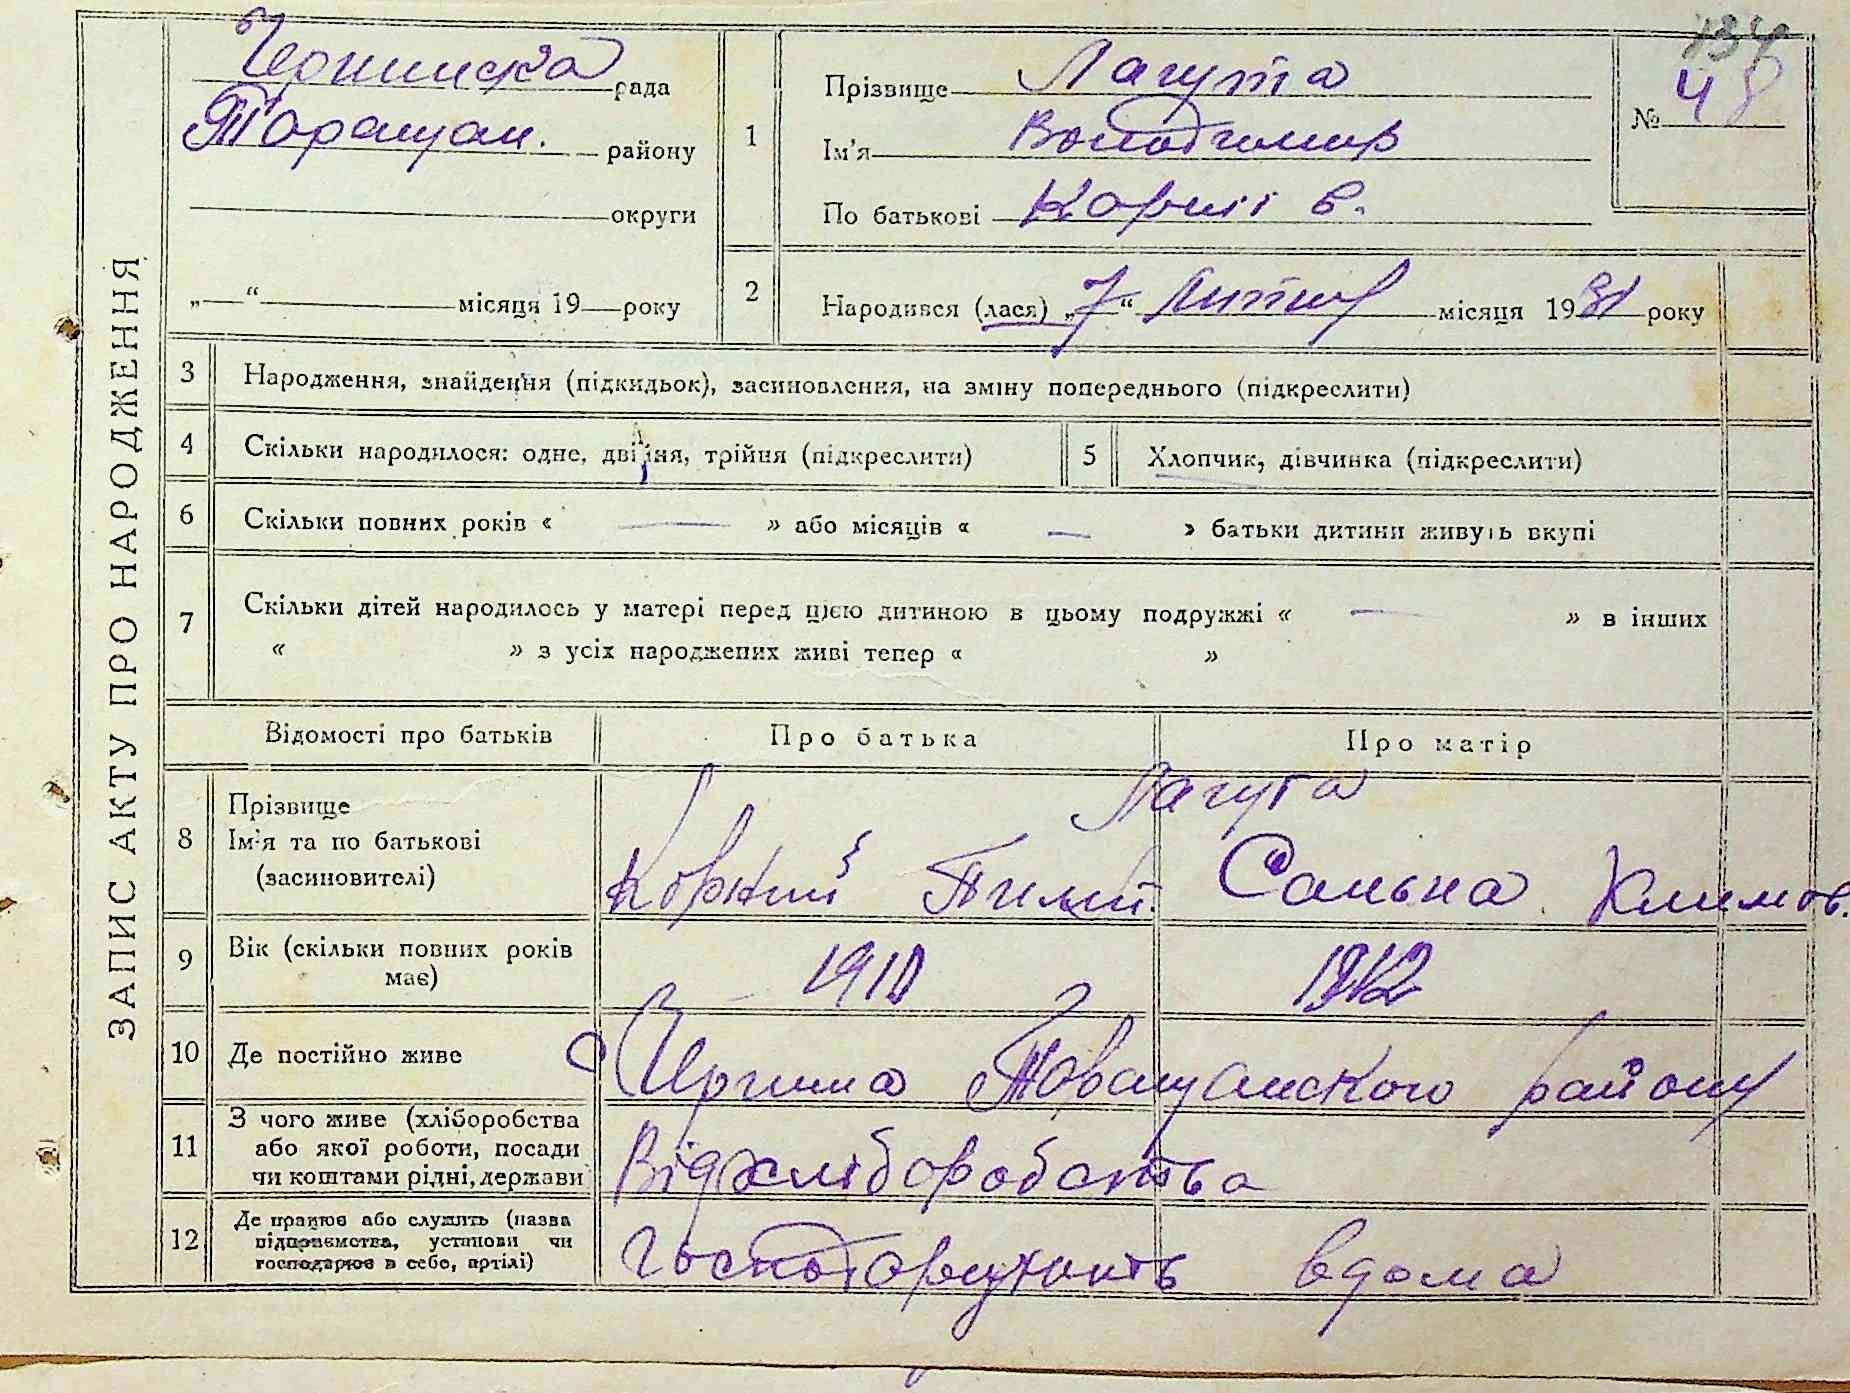 134
ЗАПИС АКТУ ПРО НАРОДЖЕННЯ
рада
Таращан. району
округи
„—“ місяця 19—року
1
Прізвище Лагута
Ім'я Володимир
По батькові Корнії в.
№ 48
2
Народився (лася) „7“ Лютня місяця 1931 року
3 Народження, знайдення (підкидьок), засиновлення, на зміну попереднього (підкреслити)
4 Скільки народилося: одне, двійня, трійня (підкреслити)
5 Хлопчик, дівчинка (підкреслити)
6 Скільки повних років « — » або місяців « — » батьки дитини живуть вкупі
7 Скільки дітей народилось у матері перед цією дитиною в цьому подружжі « — » в інших
« » з усіх народжених живі тепер « »
Відомості про батьків Про батька Про матір
8 Прізвище Лагута
Ім'я та по батькові
(засиновителі)
Корній Климов.
9 Вік (скільки повних років
має)
1910 1912
10 Де постійно живе Таращанского району
11 З чого живе (хліборобства
або якої роботи, посади
чи коштами рідні, держави
Від хліборобства
12 Де працює або служить (назва
підприємства, установи чи
господарює в себе, артілі)
Господорюють вдома